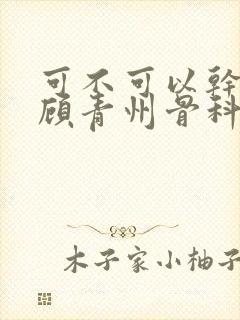 可不可以幹
顾青州骨科
木子家小柚子